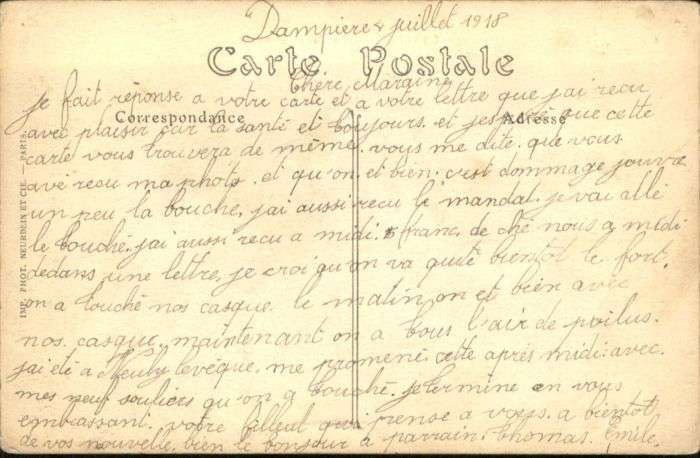 Dampierre 4 juillet 1918
Carte Postale
Chère Maraine
je fait réponse a votre carte et a votre lettre que j'ai recu
Correspondance
Adresse
avec plaisir car la santé et toujours. et j'espere que cette
carte vous trouvera de même. vous me dite que vous
avé recu ma photo. et qu'on et bien. c'est dommage jouvre
un peu la bouche. j'ai aussi recu le mandat. je vai allé
le touché. j'ai aussi recu a midi. 5 franc. de ché nous a midi
dedans une lettre. je croi qu'on va quité bientot le fort.
on a touché nos casque. le matin on et bien avec
nos casque. maintenant on a tous l'air de poilus.
j'ai été a Neuly levêque. me promené cette après midi avec.
mes neuf souliers qu'on a touché. je termine en vous
embrassant. votre filleul qui pense a vous. a bientot
de vos nouvelle. bien le bonjour a parrain. thomas. Emile.
IMP. PHOT. NEURDEIN ET CIE. — PARIS.